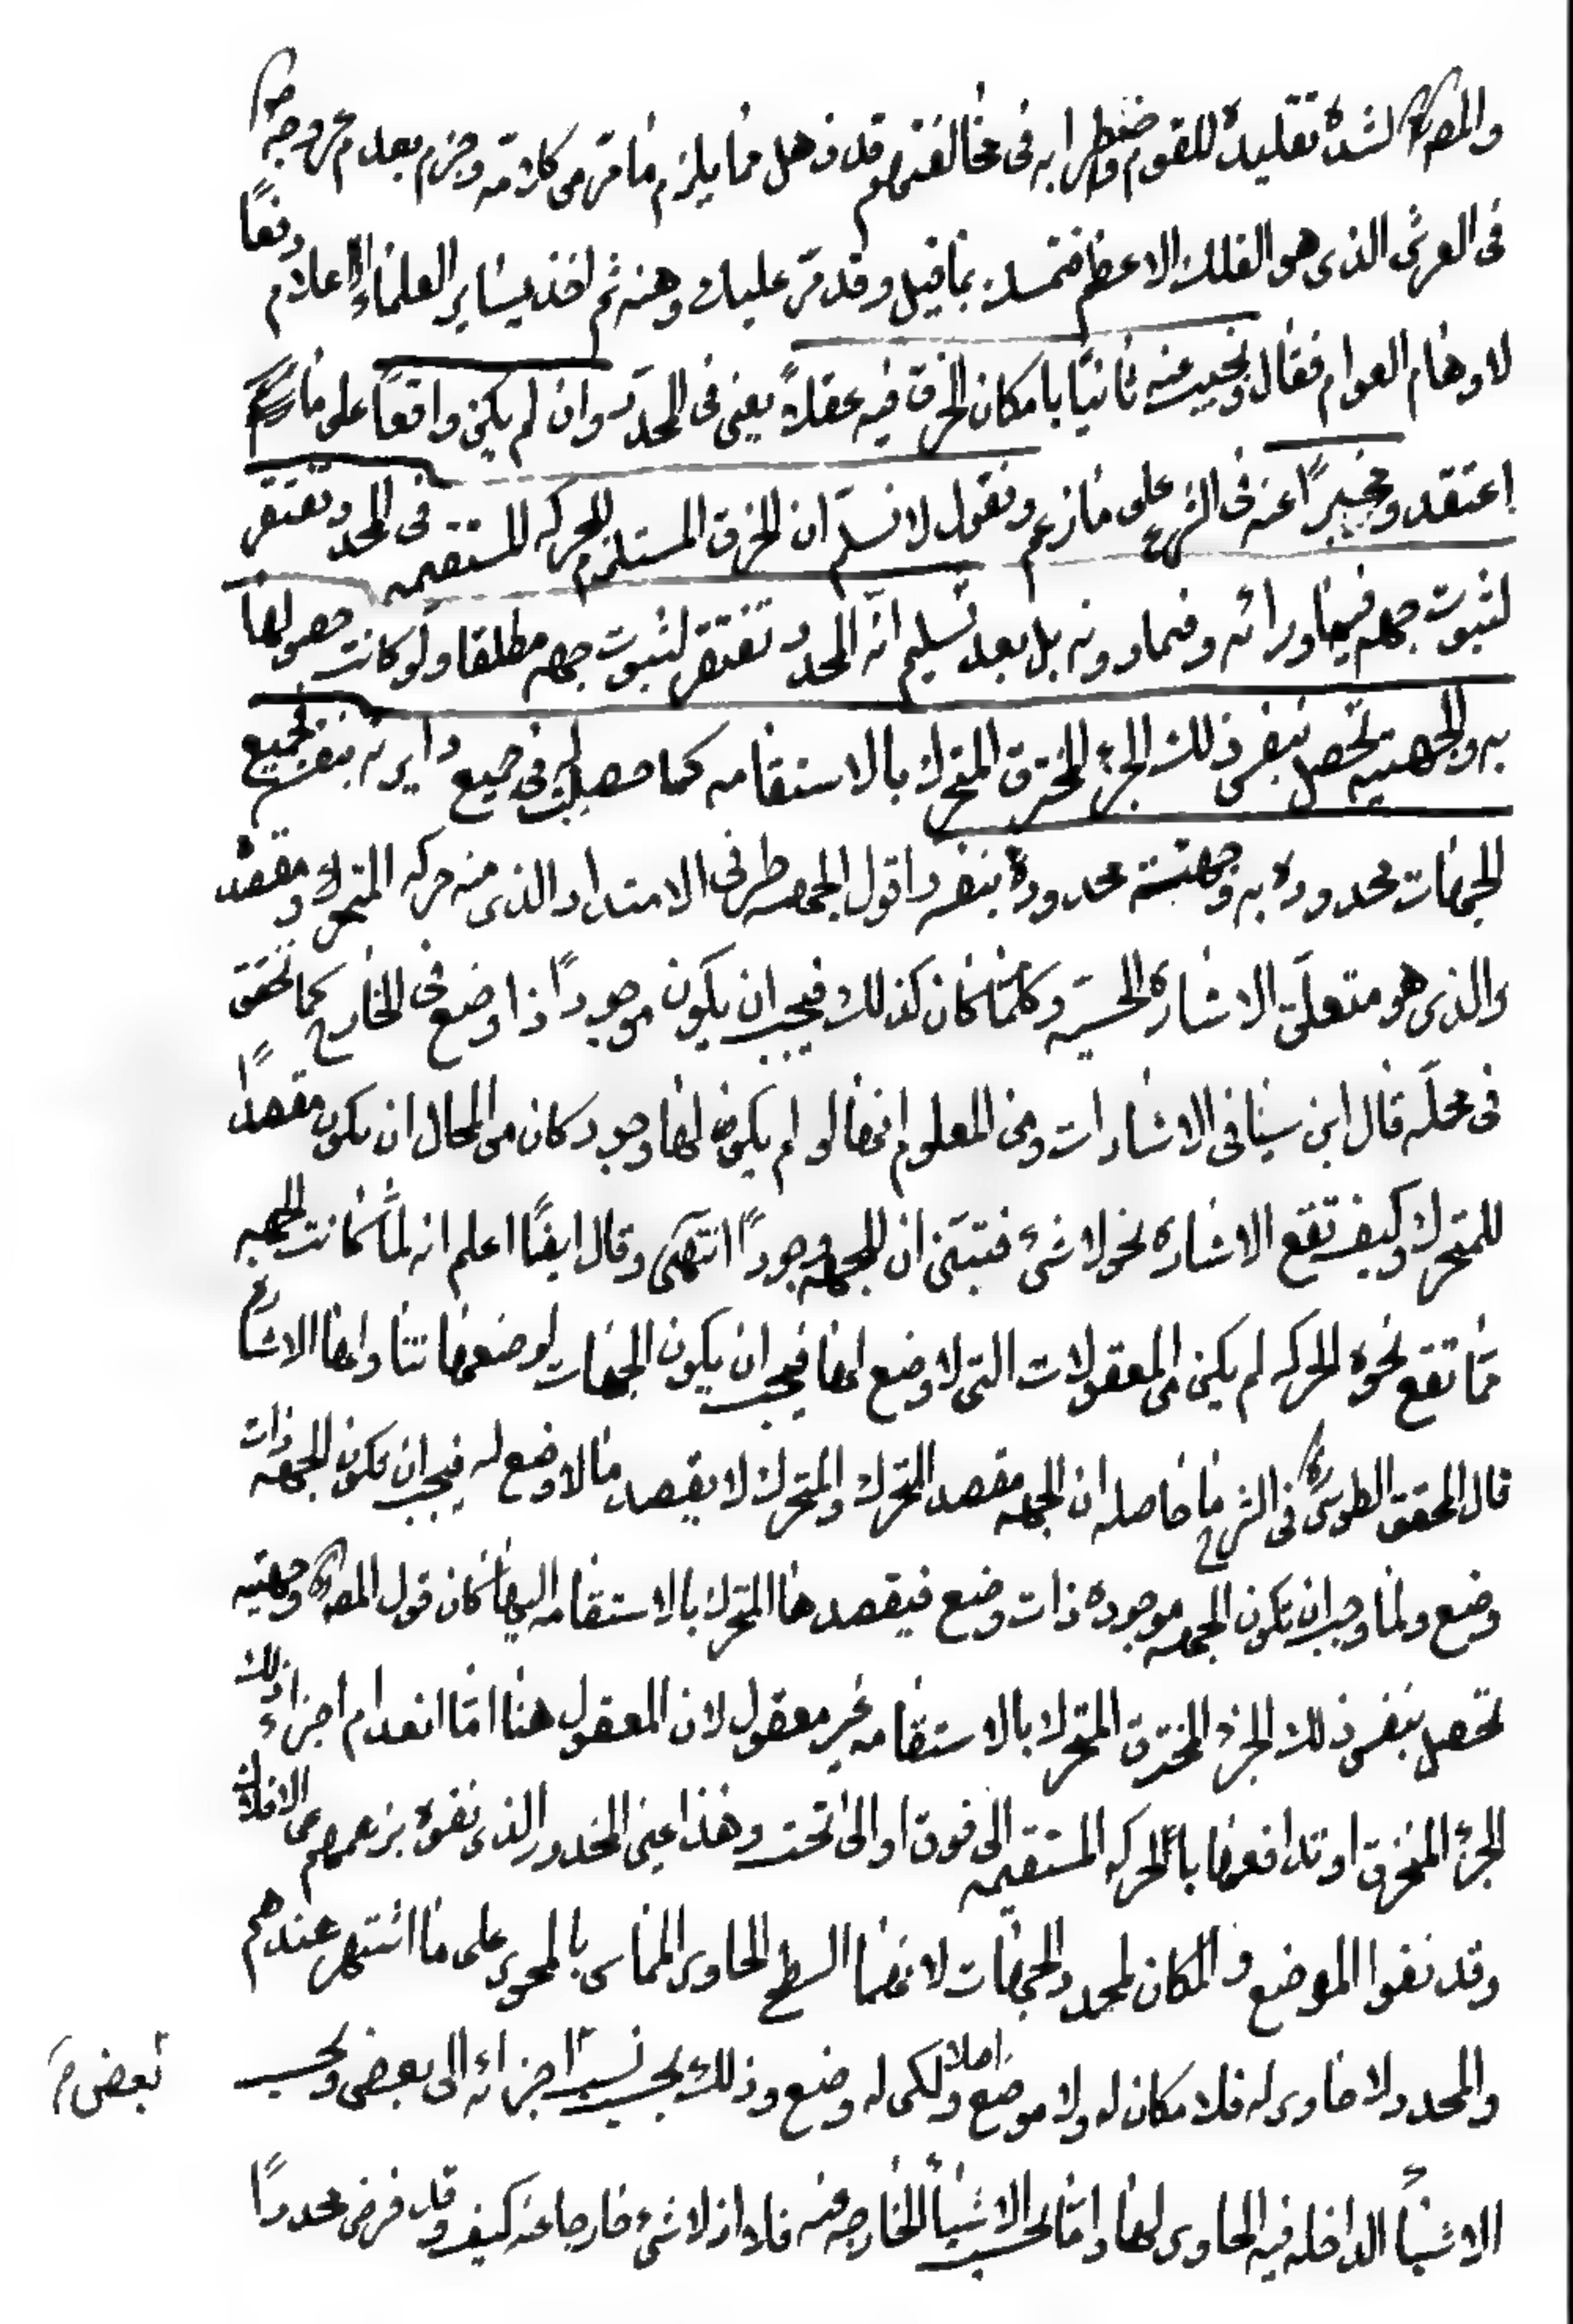 والمصره لشدة تقليده للقوم واضطرابه فى مخالفتهم قد ذهل مما يلزم ما مر من كلامه وجزم بعدم عروجه ص
فى العرش الذى هو الفلك الاعظم فتمسك بما قيل وقد مر عليك وهنه ثم اخذ يساير العلماء الاعلام دفعًا
لاوهام العوام فقال ونجيب عنه ثانيًا بامكان الخرق فيه عقلاً يعنى فى المحدد وان لم يكن واقعًا على ما
اعتقد ومخبرًا عنه فى الشرع على ما زعم ونقول لا نسلم ان الخرق المستلزم للحركه المستقيمه فى المحدد تفتقر
لثبوت جهه فيما ورائه وفيما دونه بل بعد تسليم انه المحدد تفتقر لثبوت جهه مطلقا ولو كانت حصولها
به والجهتيه تحصل بنفس ذلك الجزء المخترق المتحرك بالاستقامه كما حصلت فى جميع دايرته بنفسه فجميع
الجهات محدوده به وجهته محدودة بنفسه اقول الجهه طرف الامتداد الذى منه حركه المتحرك ومقصده
والذى هو متعلق الاشارة الحسيه وكلما كان كذلك فيجب ان يكون موجودًا ذا وضع فى الخارج كما تحقق
فى محله قال ابن سينا فى الاشارات ومن المعلوم انها لو لم يكن لها وجود كان من المحال ان تكون مقصدًا
للمتحرك وكيف تقع الاشاره نحو لا شىء فتبين ان للجهه وجودًا انتهى وقال ايضًا اعلم انه لما كانت الجهه
مما تقع نحوه الحركه لم يكن من المعقولات التى لا وضع لها فيجب ان يكون الجهات لوضعها تتناولها الاشاره
قال المحقق الطوسى ره فى الشرح ما حاصله ان الجهه مقصد المتحرك والمتحرك لا يقصد ما لا وضع له فيجب ان تكون للجهه ذات
وضع ولما وجب ان تكون الجهه موجوده ذات وضع فيقصدها المتحرك بالاستقامه اليها كان قول المصره وجهتيه
تحصل بنفس ذلك الجزء المخترق المتحرك بالاستقامه غير معقول لان المعقول هنا اما انعدام اجزاء ذلك
الجزء المنخرق او تدافعها بالحركه المستقيمه الى فوق او الى تحت وهذا عين المحذور الذى نفوه بزعمهم عن الافلاك
وقد نفوا الموضع والمكان لمحدد الجهات لانهما السطح الحاوى المماس بالمحوى على ما اشتهر عندهم
والمحدد لا حاوى له فلا مكان له ولا موضع اصلا ولكن له وضع وذلك بحسب نسبة اجزائه الى بعض وبحسب
بعض م
الاشياء الداخله فيه الحاوى لها واما بحسب الاشياء الخارجه عنه فلا اذ لا شىء خارجا عنه كيف وقد فرض محددًا